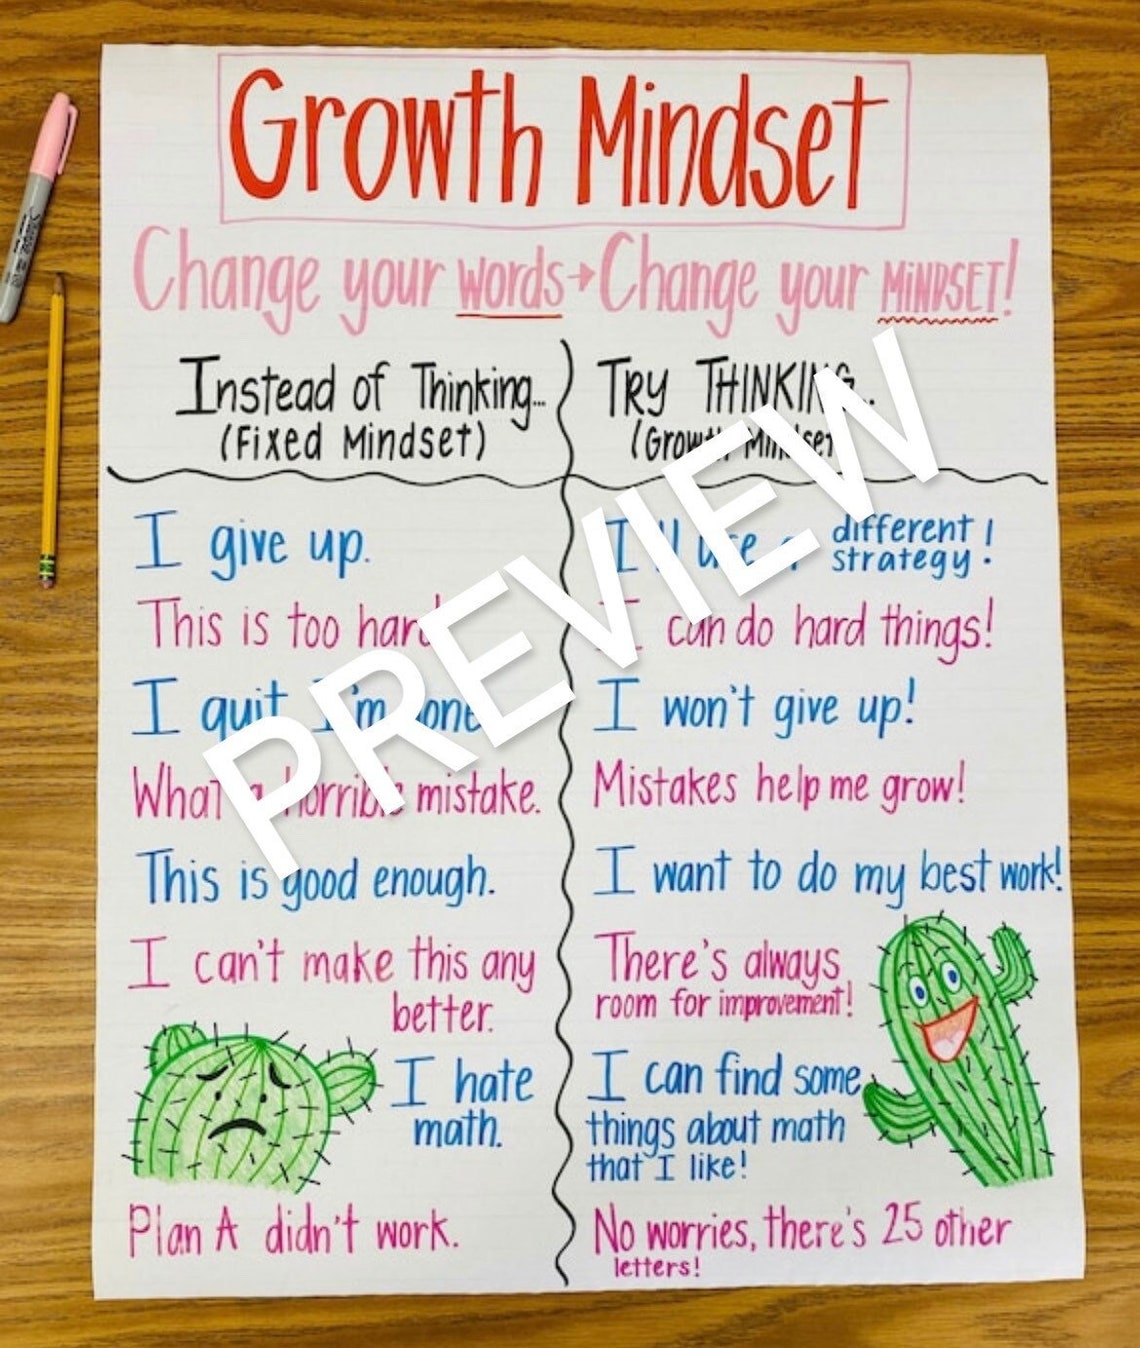 Growth Mindset
Change your words → Change your MINDSET!
Instead of Thinking...
(Fixed Mindset)
TRY THINKING...
(Growth Mindset
I give up.
I'll use a different
strategy!
This is too hard
I can do hard things!
I quit I'm done
I won't give up!
What a horrible mistake.
Mistakes help me grow!
This is good enough.
I want to do my best work!
I can't make this any
better.
There's always
room for improvement!
I hate
math.
I can find some
things about math
that I like!
Plan A didn't work.
No worries, there's 25 other
letters!
PREVIEW
Sharpie